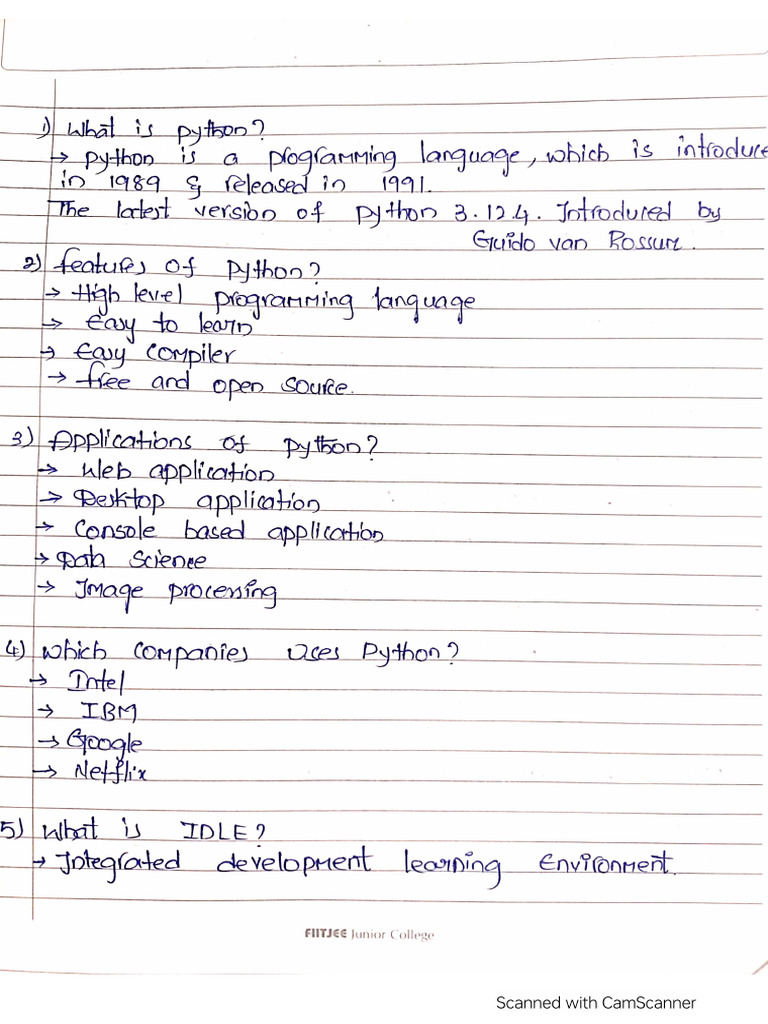 1) What is python?
→ python is a programming language, which is introduce
in 1989 & released in 1991.
The latest version of python 3.12.4. Introduced by
Guido van Rossum.
2) features of python?
→ High level programming language
→ Easy to learn
→ Easy compiler
→ free and open source.
3) Applications of python?
→ Web application
→ Desktop application
→ Console based application
→ Data Science
→ Image processing
4) which companies uses Python?
→ Intel
→ IBM
→ Google
→ Netflix
5) What is IDLE?
→ Integrated development learning Environment.
FIITJEE Junior College
Scanned with CamScanner